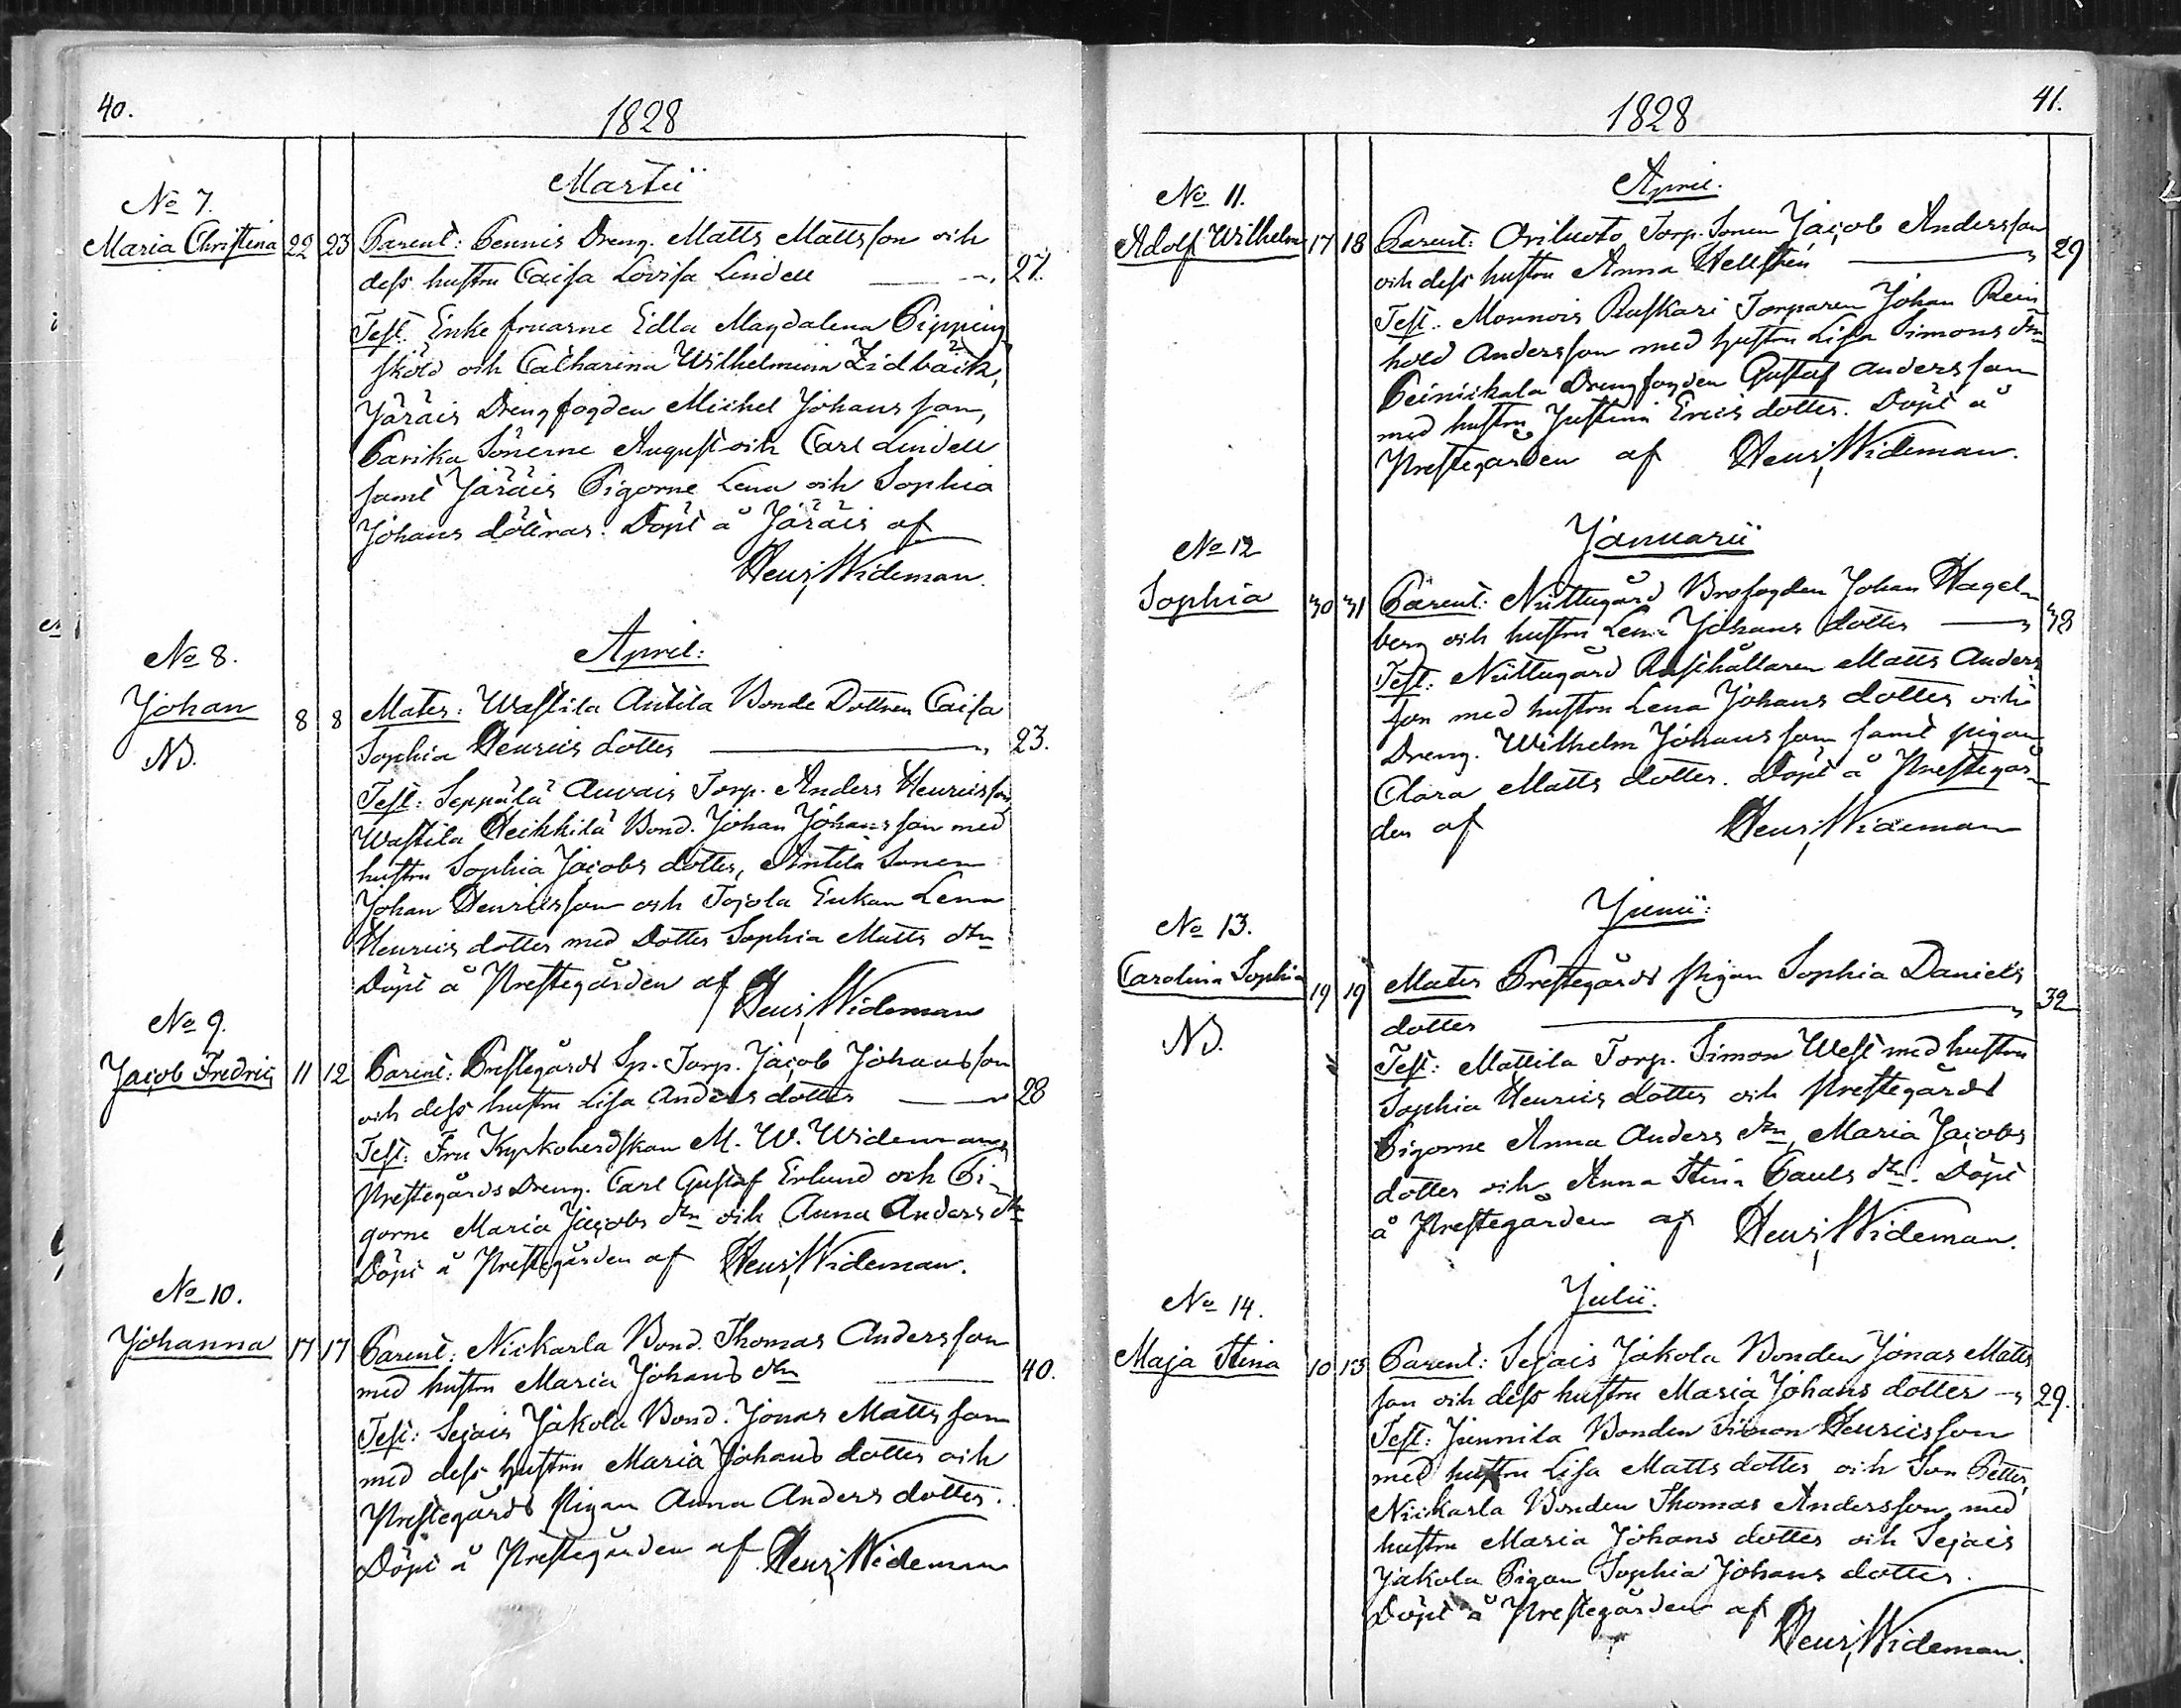 40.
1828
Martii
No 7.
Maria Christina 22 23 Parent: Pennis Dreng. Matts Mattsson och
dess hustru Caisa Lovisa Lindell 27.
Test. Enke fruarne Edla Magdalena Pipping
sköld och Catharina Wilhelmina Zidbäck,
Järäis Drengfogden Michel Johansson,
Parika Sönerne August och Carl Lindell
samt Järäis Pigorne Lena och Sophia
Johans döttrar. Döpt å Järäis af
Henr. Wideman.
April:
No 8.
Johan 8 8 Mater: Wastila Antila Bonde Dottren Caisa
NB. Sophia Henrics dotter 23.
Test: Seppälä Auvais Torp. Anders Henricsson,
Wastila Heikkilä Bond. Johan Johansson med
hustru Sophia Jacobs dotter, Antila Sonen
Johan Henricsson och Tojola Enkan Lena
Henrics dotter med Dotter Sophia Matts dtr
Döpt å Prestegården af
Henr. Wideman
No 9.
Jacob Fredric 11 12 Parent: Prestegårds Sp. Torp. Jacob Johansson
och dess hustru Lisa Anders dotter 28
Test: Fru Kyrkoherdskan M. W. Wideman,
Prestegårds Dreng. Carl Gustaf Erlund och Pi-
gorne Maria Jacobs dtr och Anna Anders dtr
Döpt å Prestegården af Henr. Wideman.
No 10.
Johanna 17 17 Parent: Nickarla Bond. Thomas Andersson
med hustru Maria Johans dtr 40.
Test: Sejais Jäkola Bond. Jonas Mattsson
med dess hustru Maria Johans dotter och
Prestegårds Pigan Anna Anders dotter.
Döpt å Prestegården af Henr. Wideman
41.
1828
April.
No 11.
Adolf Wilhelm 17 18 Parent: Oriluoto Torp. Sonen Jacob Andersson
och dess hustru Anna Hellstén 29
Test. Monnois Ruskari Torparen Johan Rein
hold Andersson med hustru Lisa Simons dtr
Peinickala Drengfogden Gustaf Andersson
med hustru Justina Erics dotter. Döpt å
Prestegården af Henr. Wideman.
Januarii
No 12
Sophia 30 31 Parent: Nuttugård Brofogden Johan Hagel-
berg och hustru Lena Johans dotter 38
Test: Nuttugård Rusthållaren Matts Anders
son med hustru Lena Johans dotter och
Dreng. Wilhelm Johansson samt pigan
Clara Matts dotter. Döpt å Prestegår-
den af Henr. Wideman
Junii:
No 13.
Carolina Sophia 19 19 Mater Prestegårds Pigan Sophia Daniels
NB. dotter 32
Test: Mattila Torp. Simon West med hustru
Sophia Henrics dotter och Prestegårds
Pigorne Anna Anders dtr, Maria Jacobs
dotter och Anna Stina Pauls dtr. Döpt
å Prestegården af Henr. Wideman.
Julii.
No 14.
Maja Stina 10 13 Parent: Sejais Jäkola Bonden Jonas Matts
son och dess hustru Maria Johans dotter 29.
Test: Junnila Bonden Simon Henricsson
med hustru Lisa Matts dotter och Son Petter,
Nickarla Bonden Thomas Andersson med
hustru Maria Johans dotter och Sejais
Jäkola Pigan Sophia Johans dotter.
Döpt å Prestegården af
Henr. Wideman.